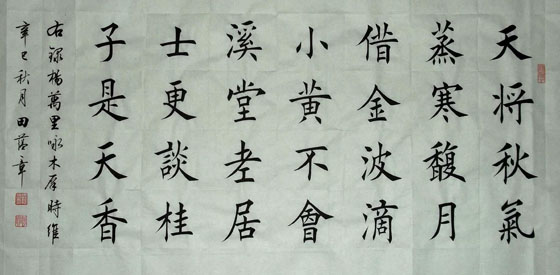 天将秋氣
蒸寒馥月
借金波滴
小黃不會
溪堂老居
士更談桂
子是天香
右録楊萬里咏木犀時維
辛巳秋月田蘊章